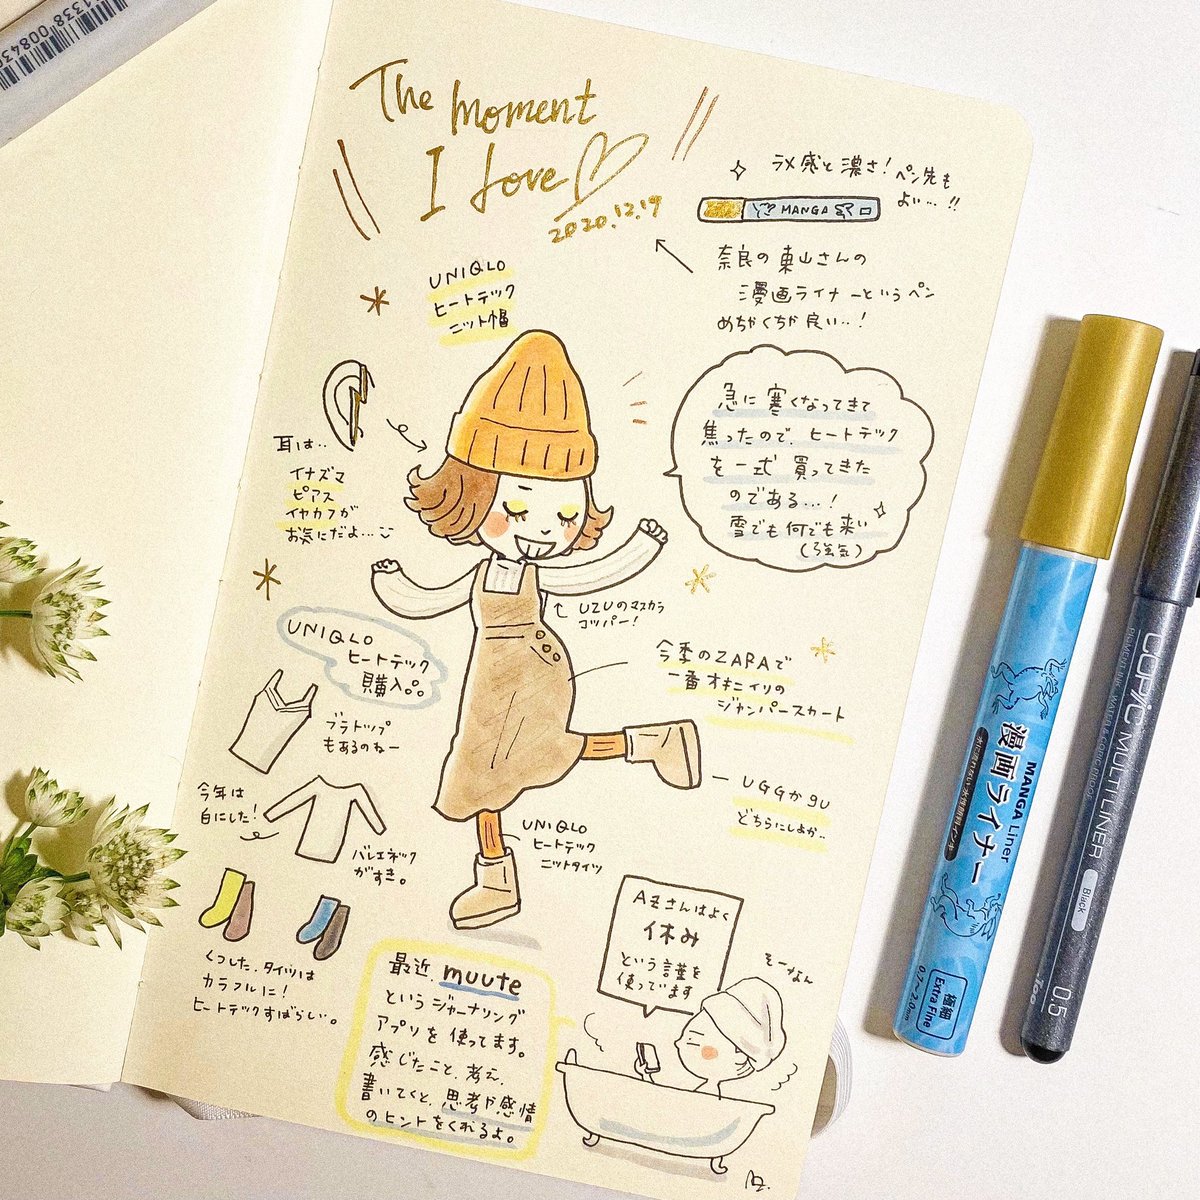 The moment
I Love
2020.12.19
ラメ感と濃さ! ペン先も
よい…!!
MANGA
奈良の東山さんの
漫画ライナーというペン
めちゃくちゃ良い..!
UNIQLO
ヒートテック
ニット帽
耳は..
イナズマ
ピアス
イヤカフが
お気にだよ…
急に寒くなってきて
焦ったので、ヒートテック
を一式買ってきた
のである…!
雪でも何でも来い
(強気)
UZUのマスカラ
コッパー!
UNIQLO
ヒートテック
購入。。
今季のZARAで
一番オキニイリの
ジャンパースカート
ブラトップ
もあるのねー
今年は
白にした!
バレエネック
がすき。
UGGかgu
どちらにしよか..
UNIQLO
ヒートテック
ニットタイツ
くつした、タイツは
カラフルに!
ヒートテックすばらしい。
最近、muute
というジャーナリング
アプリを使ってます。
感じたこと、考え、
書いてくと、思考や感情
のヒントをくれるよ。
さんはよく
休み
という言葉を
使ってます
そーなん
MANGA Liner
漫画ライナー
極細
Extra Fine
0.7~2.0mm
COPIC MULTI LINER
PIGMENT INK, WATER & COPIC PROOF
Black
0.5
Too